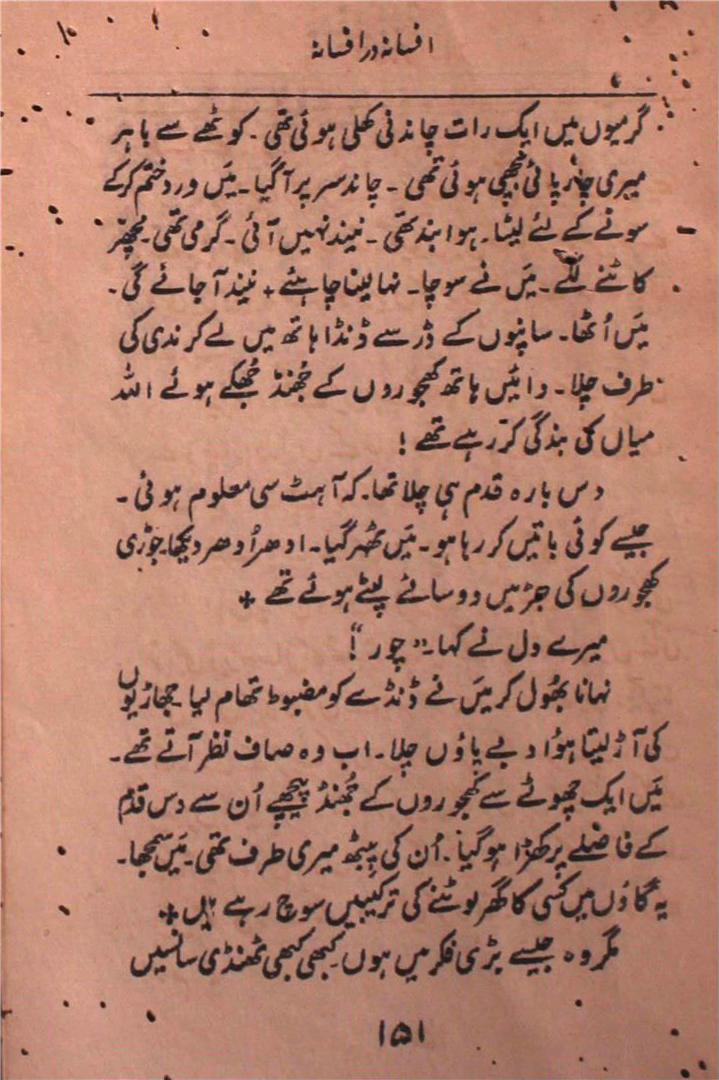 افسانہ در افسانہ
گرمیوں میں ایک رات چاندنی کھلی ہوئی تھی ۔ کوٹھے سے باہر
میری چارپائی بچھی ہوئی تھی ۔ چاند سر پر آگیا ۔ میَں ورد ختم کرکے
سونے کے لئے لیٹا ۔ ہوا بند تھی ۔ نیند نہیں آئی ۔ گرمی تھی ۔ مچھّر
کاٹنے لگے ۔ میَں نے سوچا ۔ نہا لینا چاہئے + نیند آ جائے گی ۔
میَں اُٹھا ۔ سانپوں کے ڈر سے ڈنڈا ہاتھ میں لے کر ندی کی
طرف چلا ۔ دائیں ہاتھ کھجوروں کے جُھنڈ جُھکے ہوئے اللہ
میاں کی بندگی کر رہے تھے !
دس بارہ قدم ہی چلا تھا ۔ کہ آہٹ سی معلوم ہوئی ۔
جیسے کوئی باتیں کر رہا ہو ۔ میَں ٹھہر گیا ۔ ادھر اُدھر دیکھا جوڑی
کھجوروں کی جڑ میں دو سائے لپٹے ہوئے تھے +
میرے دل نے کہا ۔ "چور"!
نہانا بھُول کر میَں نے ڈنڈے کو مضبوط تھام لیا جھاڑیوں
کی آڑ لیتا ہؤا دبے پاؤں چلا ۔ اب وہ صاف نظر آتے تھے ۔
میَں ایک چھوٹے سے کھجوروں کے جُھنڈ پیچھے اُن سے دس قدم
کے فاصلے پر کھڑا ہو گیا ۔ اُن کی پیٹھ میری طرف تھی ۔ میَں سمجھا ۔
یہ گاؤں میں کسی کا گھر لوٹنے کی ترکیبیں سوچ رہے ہیں +
مگر وہ جیسے بڑی فکر میں ہوں ۔ کبھی کبھی ٹھنڈی سانسیں
۱۵۱